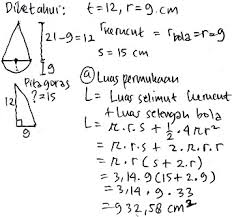 Diketahui: t=12, r=9 cm
21-9=12
rkerucut = rbola = r=9
s = 15 cm
9
Pitagoras
? = 15
12
9
a Luas permukaan
L = Luas selimut kerucut
+ Luas setengah bola
L = π.r.s + 1/2.4πr²
= π.r.s + 2.π.r.r
= π.r (s + 2.r)
= 3,14.9(15+2.9)
= 3,14.9.33
= 932,58 cm²